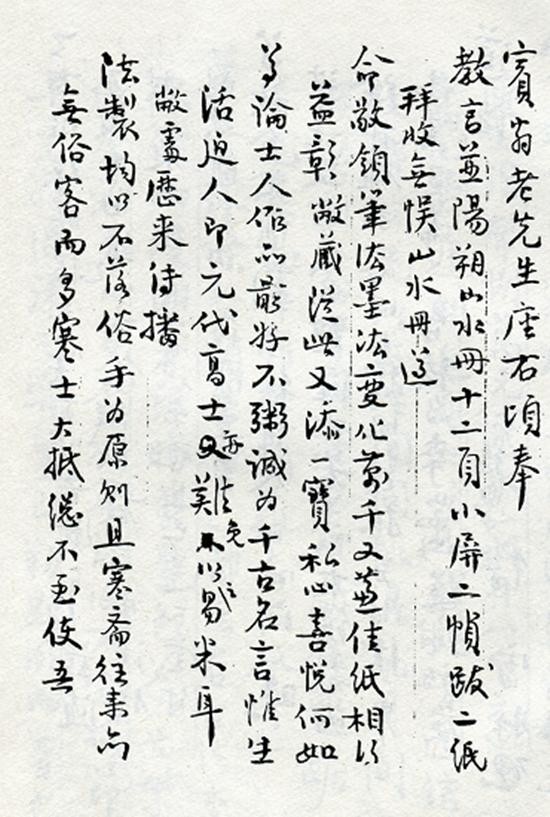 賓翁老先生座右頃奉
教言並陽朔山水冊十二頁小屏二幀跋二紙
拜收無悮山水冊遵
命敬領筆法墨法變化萬千又兼佳紙相得
益彰敝藏從此又添一寶私心喜悅何如
尊論士人作品最好不鬻誠為千古名言惟生
活迫人即元代高士亦難免以之易米耳
敝處歷來待播
法製均以不落俗手為原則且寒齋往來亦
無俗客而多寒士大抵總不至使吾